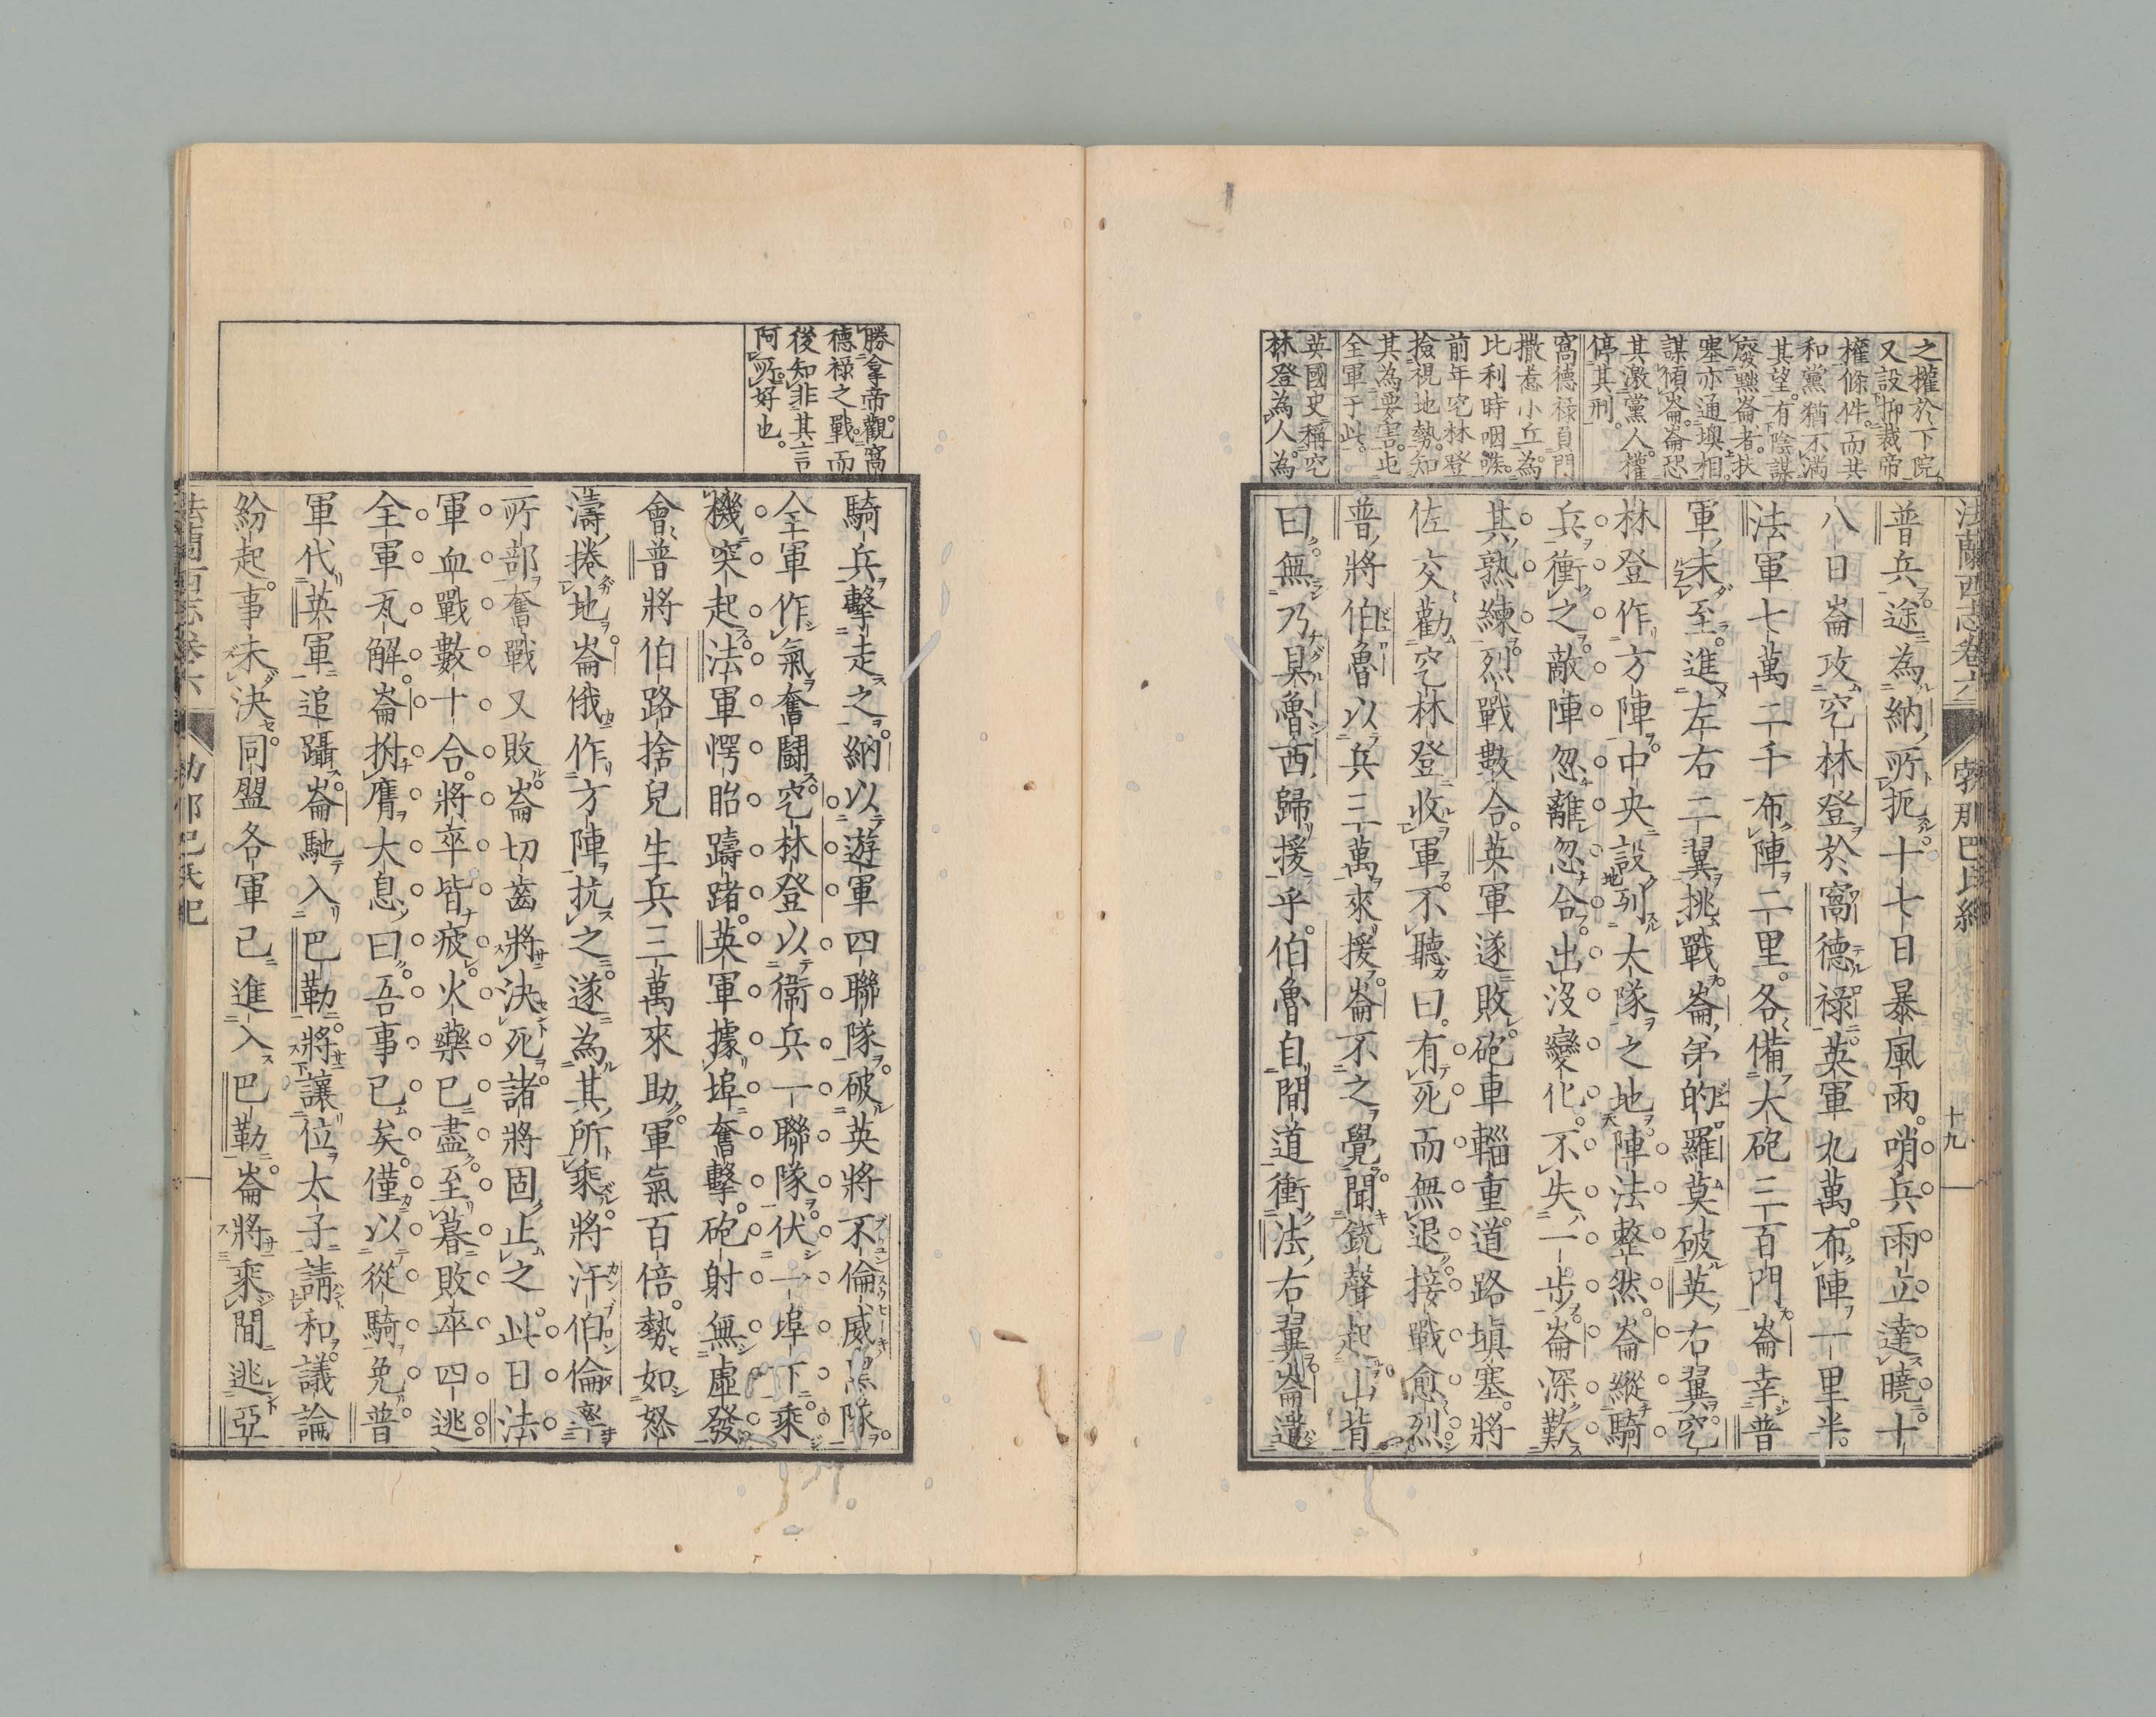 之權於下院
又設抑裁帝
權條件而其
和黨猶不滿
其望有陰謀
廢黜崙者扶
塞亦通墺相
謀傾崙崙恐
其激黨人權
停其刑
窩德祿頁門
撒惹小丘為
比利時咽喉
前年究林登
撿視地勢知
其為要害屯
全軍于此
英國史稱究
林登為人為
法蘭西志卷六
勃那巴氏紀
十九
普兵途為納所扼十七日暴風雨哨兵雨立達曉十
八日崙攻究林登於窩德祿英軍九萬布陣一里半
法軍七萬二千布陣二里各備大砲三百門崙幸普
軍未至進左右二翼挑戰崙弟的羅莫破英右翼究
林登作方陣中央設列大隊之地陣法整然崙縱騎
兵衝之敵陣忽離忽合出沒變化不失一步崙深歎
其熟練烈戰數合英軍遂敗砲車輜重道路塡塞將
佐交勸究林登收軍不聽曰有死而無退接戰愈烈
普將伯魯以兵三萬來援崙不之覺聞銃聲起山背
曰無乃具魯西歸援乎伯魯自間道衝法右翼崙遣
勝拿帝觀窩
德祿之戰而
後知非其言
阿所好也
騎兵擊走之納以遊軍四聯隊破英將不倫威黑隊
全軍作氣奮鬪究林登以衞兵一聯隊伏一埠下乘
機突起法軍愕眙躊躇英軍據埠奮擊砲射無虛發
會普將伯路捨兒生兵三萬來助軍氣百倍勢如怒
濤捲地崙俄作方陣抗之遂為其所乘將汗伯倫率
所部奮戰又敗崙切齒將決死諸將固止之此日法
軍血戰數十合將卒皆疲火藥已盡至暮敗卒四逃
全軍瓦解崙拊膺大息曰吾事已矣僅以從騎免普
軍代英軍追躡崙馳入巴勒將讓位太子請和議論
紛起事未決同盟各軍已進入巴勒崙將乘間逃亞
法蘭西志卷六
勃那巴氏紀